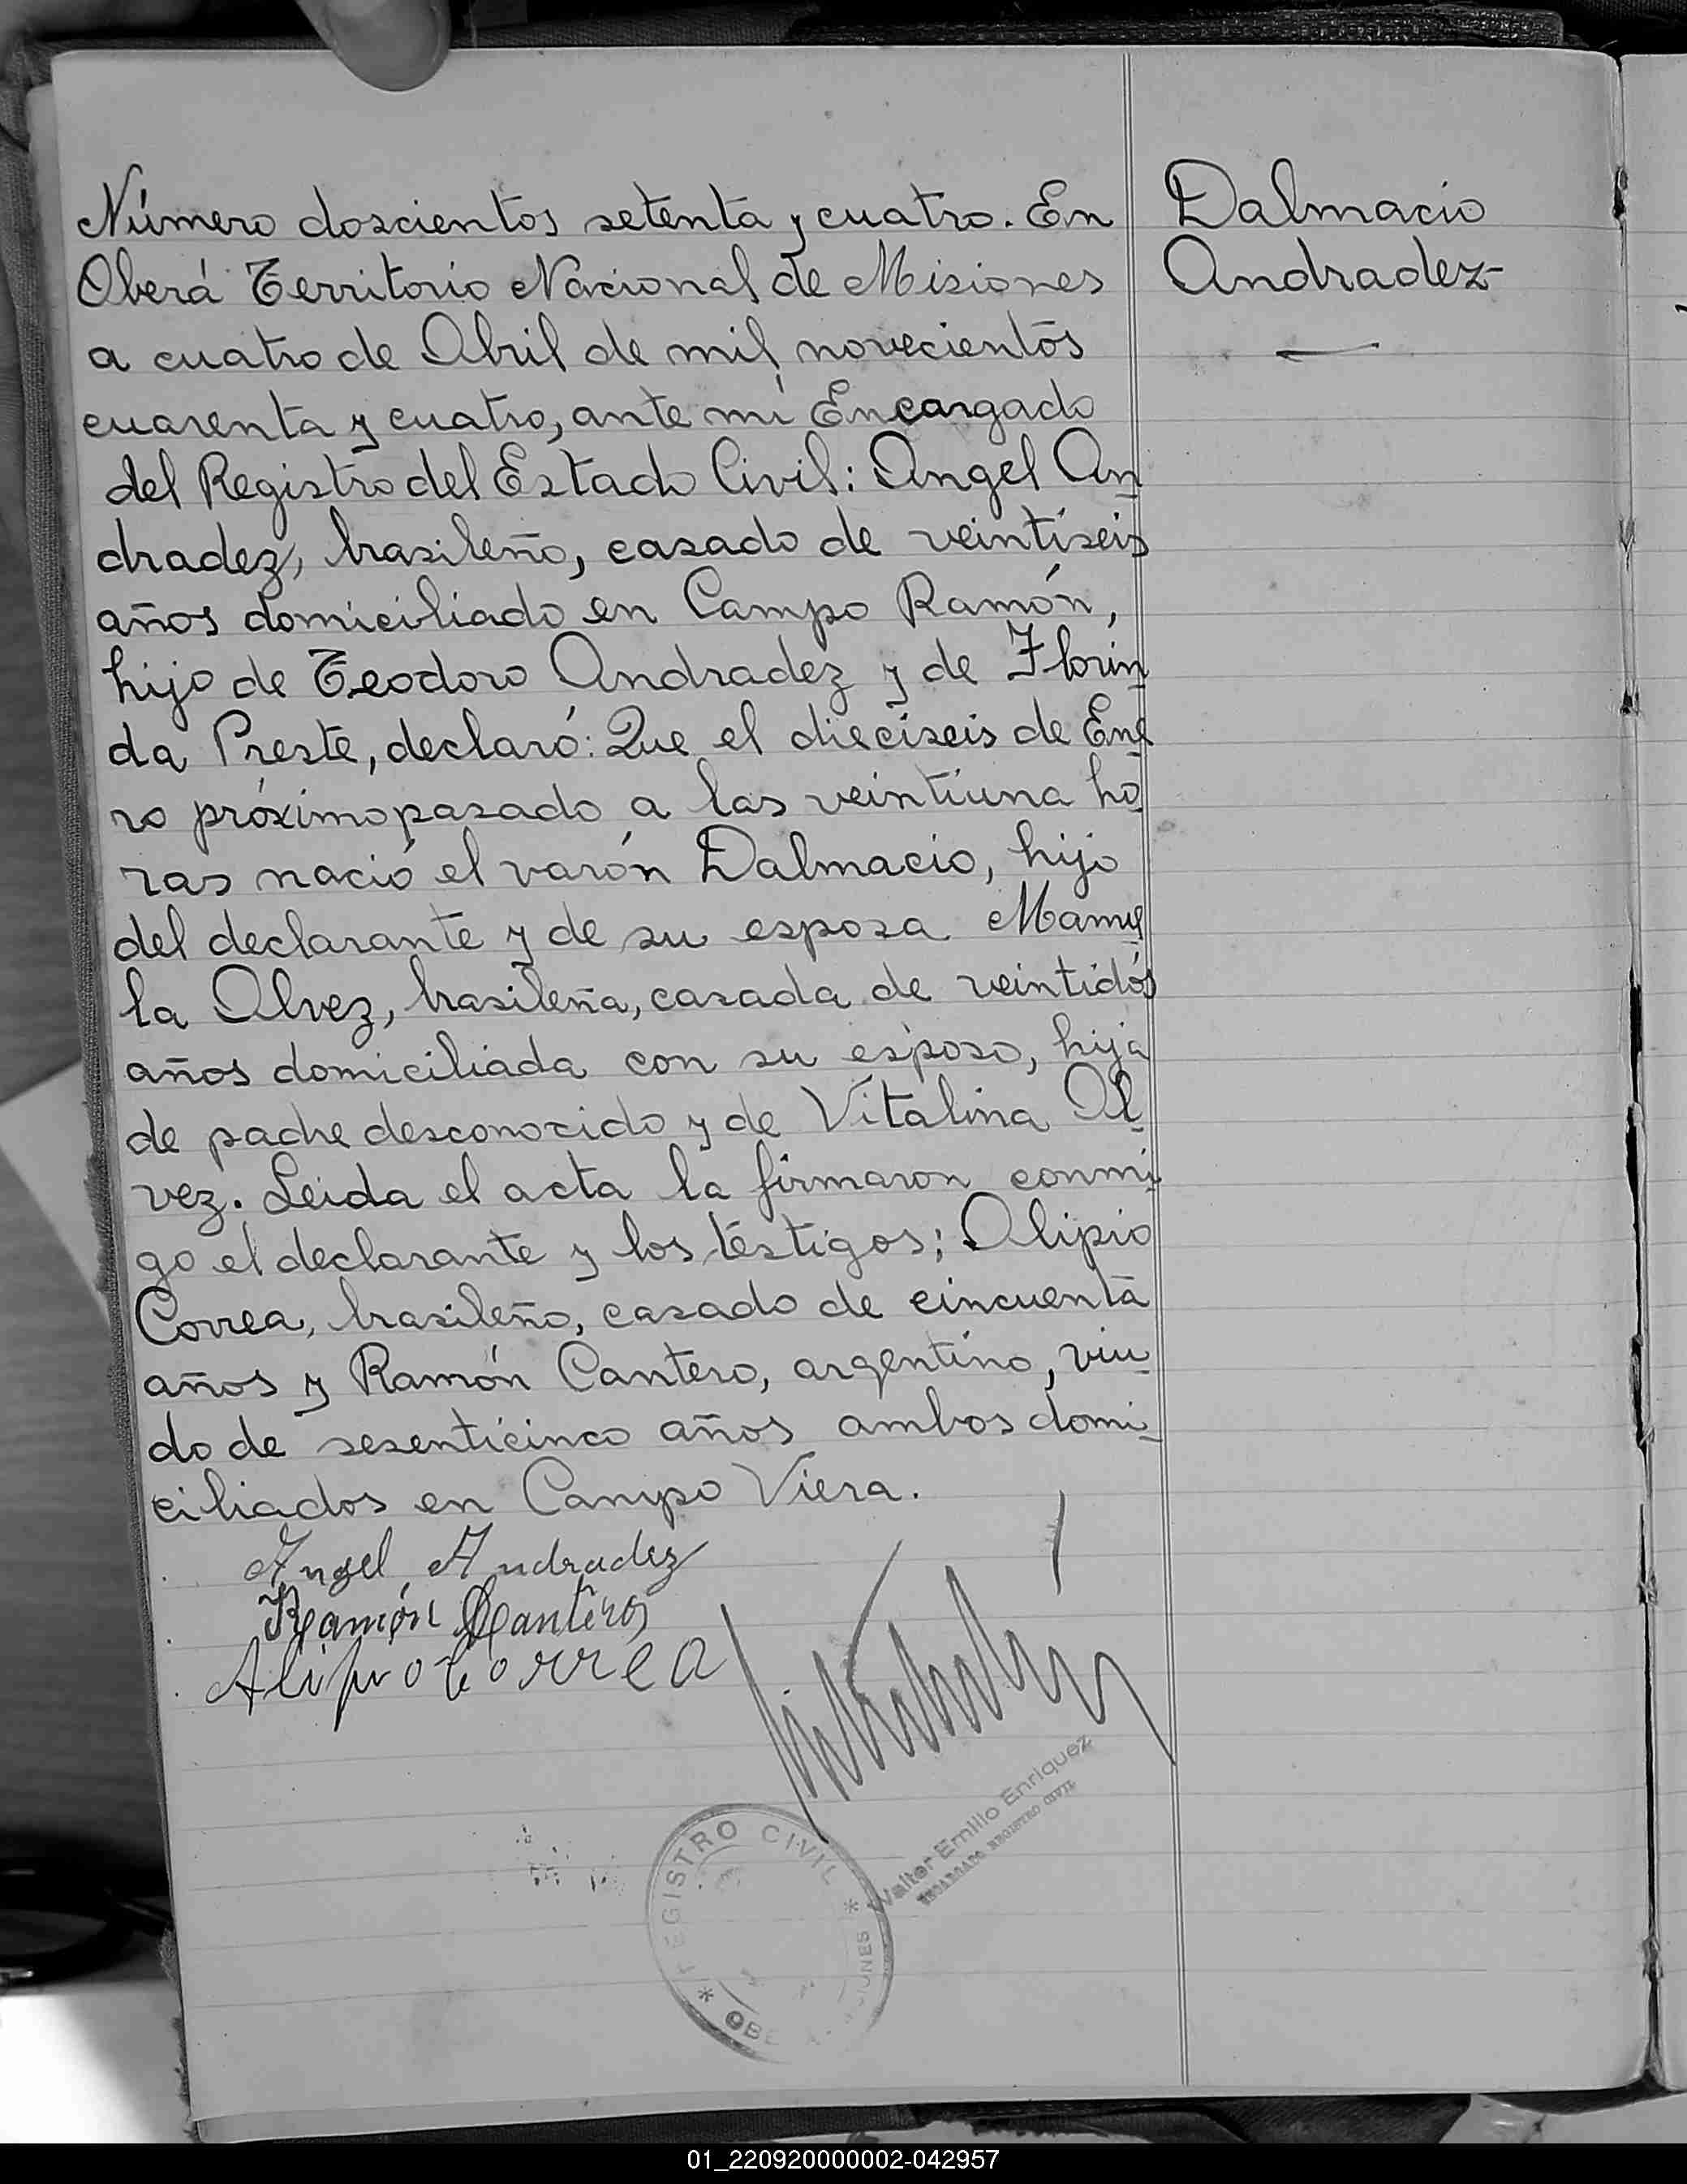 Número doscientos setenta y cuatro. En
Oberá Territorio Nacional de Misiones
a cuatro de Abril de mil novecientos
cuarenta y cuatro, ante mí Encargado
del Registro del Estado Civil: Angel An
dradez, brasileño, casado de veintiseis
años domiciliado en Campo Ramón,
hijo de Teodoro Andradez y de Florin
da Preste, declaró: Que el dieciseis de Ene
ro próximo pasado a las veintiuna ho
ras nació el varón Dalmacio, hijo
del declarante y de su esposa Manue
la Alvez, brasileña, casada de veintidós
años domiciliada con su esposo, hija
de padre desconocido y de Vitalina Al
vez. Leida el acta la firmaron conmi
go el declarante y los testigos; Alipio
Correa, brasileño, casado de cincuenta
años y Ramón Cantero, argentino, viu
do de sesenticinco años ambos domi
ciliados en Campo Viera.
Dalmacio
Andradez
Angel Andradez
Ramón Cantero
Alipio Correa
Walter Emilio Enriquez
ENCARGADO REGISTRO CIVIL
REGISTRO CIVIL
01_220920000002-042957